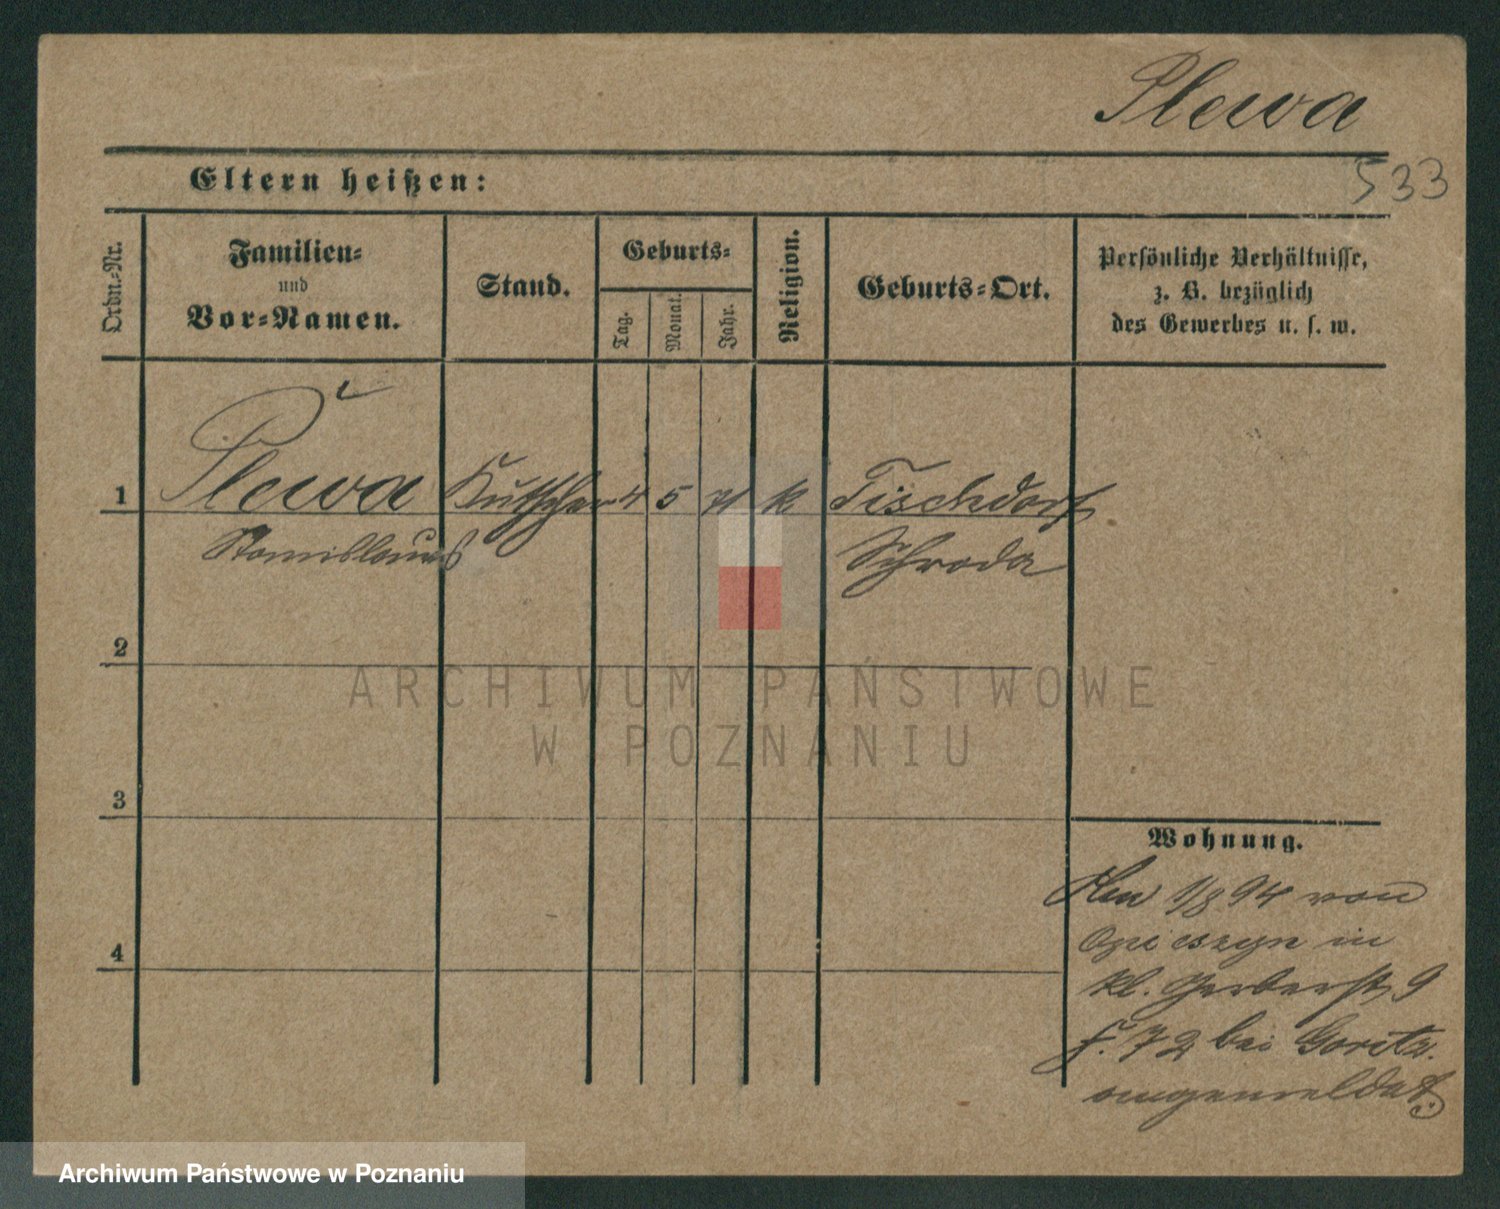 Plewa
533
Eltern heißen:
Ordn.-Nr.
Familien-
und
Vor-Namen.
Stand.
Geburts-
Tag.
Monat.
Jahr.
Religion.
Geburts-Ort.
Persönliche Verhältnisse,
z. B. bezüglich
des Gewerbes u. s. w.
1 Plewa Kutscher 4 5 71 k. Tischdorf
Stanislaus Schroda
2
ARCHIWUM PAŃSTWOWE
W POZNANIU
3
Wohnung.
1/8 94 von
in
4
kl. Gerberstr 9
f. 72 bei Goritz.
angemeldet
Archiwum Państwowe w Poznaniu